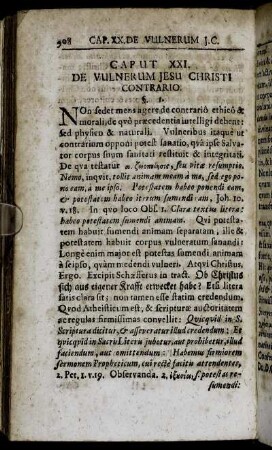 908 CAP. XX. DE VULNERUM J.C.
CAPUT XXI.
DE VULNERUM JESU CHRISTI
CONTRARIO.
§. 1.
NOn sedet mens agere de contrario ethicô &
morali, de quô præcedentia intelligi debent:
sed physico & naturali. Vulneribus itaque ut
contrarium opponi potest sanatio, quâ ipse Salvator
corpus suum sanitati restituit & integritati.
De quâ testatur à seu vitæ resumptio.
Nemo, inquit, tollit animam meam à me, sed ego pono
eam, à me ipso. Potestatem habeo ponendi eam,
& potestatem habeo iterum sumendi eam, Joh. 10.
v. 18. In quo loco Obs. 1. Clara textus litera:
habeo potestatem sumendi animam. Qui potestatem
habuit sumendi animam separatam, ille &
potestatem habuit corpus vulneratum sanandi:
Longè enim major est potestas sumendi animam
à seipso, quàm medendi vulneri. Atqvi Christus,
Ergo. Excipit Schæfferus in tract. Ob Christus
sich aus eigener Krafft erwecket habe? Etsi litera
satis clara sit; non tamen esse statim credendum.
Quod Atheisticum est, & scripturæ auctoritatem
ac regulas firmissimas convellit: Quicquid in S.
Scriptura dicitur, & asseveratur illud credendum; Et
qvicqvid in Sacris Literis jubetur aut prohibetur, illud
faciendum, aut omittendum: Habemus firmiorem
sermonem Propheticum, cui rectè facitis attendentes,
2. Pet. 1. v. 19. Observanda. 2. ἐξουσία, s. potestas resumendi: